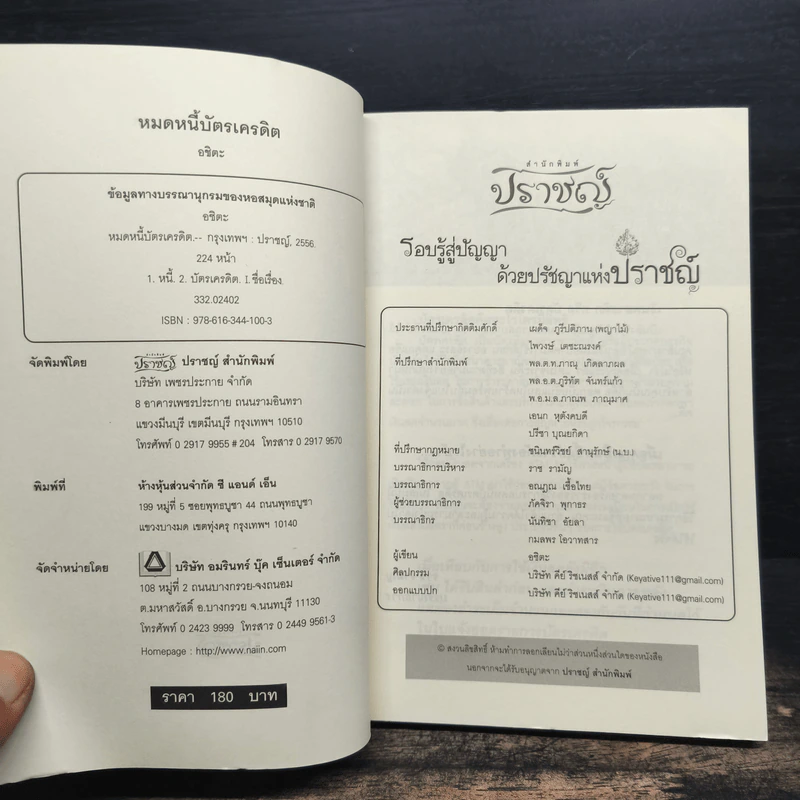 หมดหนี้บัตรเครดิต
อชิตะ
ข้อมูลทางบรรณานุกรมของหอสมุดแห่งชาติ
อชิตะ
หมดหนี้บัตรเครดิต.-- กรุงเทพฯ : ปราชญ์, 2556.
224 หน้า
1. หนี้. 2. บัตรเครดิต. I. ชื่อเรื่อง.
332.02402
ISBN : 978-616-344-100-3
จัดพิมพ์โดย
ปราชญ์ ปราชญ์ สำนักพิมพ์
บริษัท เพชรประกาย จำกัด
8 อาคารเพชรประกาย ถนนรามอินทรา
แขวงมีนบุรี เขตมีนบุรี กรุงเทพฯ 10510
โทรศัพท์ 0 2917 9955 # 204 โทรสาร 0 2917 9570
พิมพ์ที่
ห้างหุ้นส่วนจำกัด ซี แอนด์ เอ็น
199 หมู่ที่ 5 ซอยพุทธบูชา 44 ถนนพุทธบูชา
แขวงบางมด เขตทุ่งครุ กรุงเทพฯ 10140
จัดจำหน่ายโดย
บริษัท อมรินทร์ บุ๊ค เซ็นเตอร์ จำกัด
108 หมู่ที่ 2 ถนนบางกรวย-จงถนอม
ต.มหาสวัสดิ์ อ.บางกรวย จ.นนทบุรี 11130
โทรศัพท์ 0 2423 9999 โทรสาร 0 2449 9561-3
Homepage : http://www.naiin.com
ราคา 180 บาท
สำนักพิมพ์
ปราชญ์
รอบรู้สู่ปัญญา
ด้วยปรัชญาแห่งปราชญ์
ประธานที่ปรึกษากิตติมศักดิ์ เผด็จ ภูรีปติภาน (พญาไม้)
ไพวงษ์ เตชะณรงค์
ที่ปรึกษาสำนักพิมพ์ พล.ต.ท.ภาณุ เกิดลาภผล
พล.อ.ต.ภูริทัต จันทร์แก้ว
พ.อ.ม.ล.ภาณพ ภาณุมาศ
เอนก หุตังคบดี
ปรีชา บุณยกิดา
ที่ปรึกษากฎหมาย ชนินทร์วิชย์ สานุรักษ์ (น.บ.)
บรรณาธิการบริหาร ราช รามัญ
บรรณาธิการ อณฎณ เชื้อไทย
ผู้ช่วยบรรณาธิการ ภัคจิรา พุกาธร
บรรณาธิกร นันทิชา อัยลา
กมลพร โอวาทสาร
ผู้เขียน อชิตะ
ศิลปกรรม บริษัท คีย์ ริชเนสส์ จำกัด (Keyative111@gmail.com)
ออกแบบปก บริษัท คีย์ ริชเนสส์ จำกัด (Keyative111@gmail.com)
© สงวนลิขสิทธิ์ ห้ามทำการลอกเลียนไม่ว่าส่วนหนึ่งส่วนใดของหนังสือ
นอกจากจะได้รับอนุญาตจาก ปราชญ์ สำนักพิมพ์